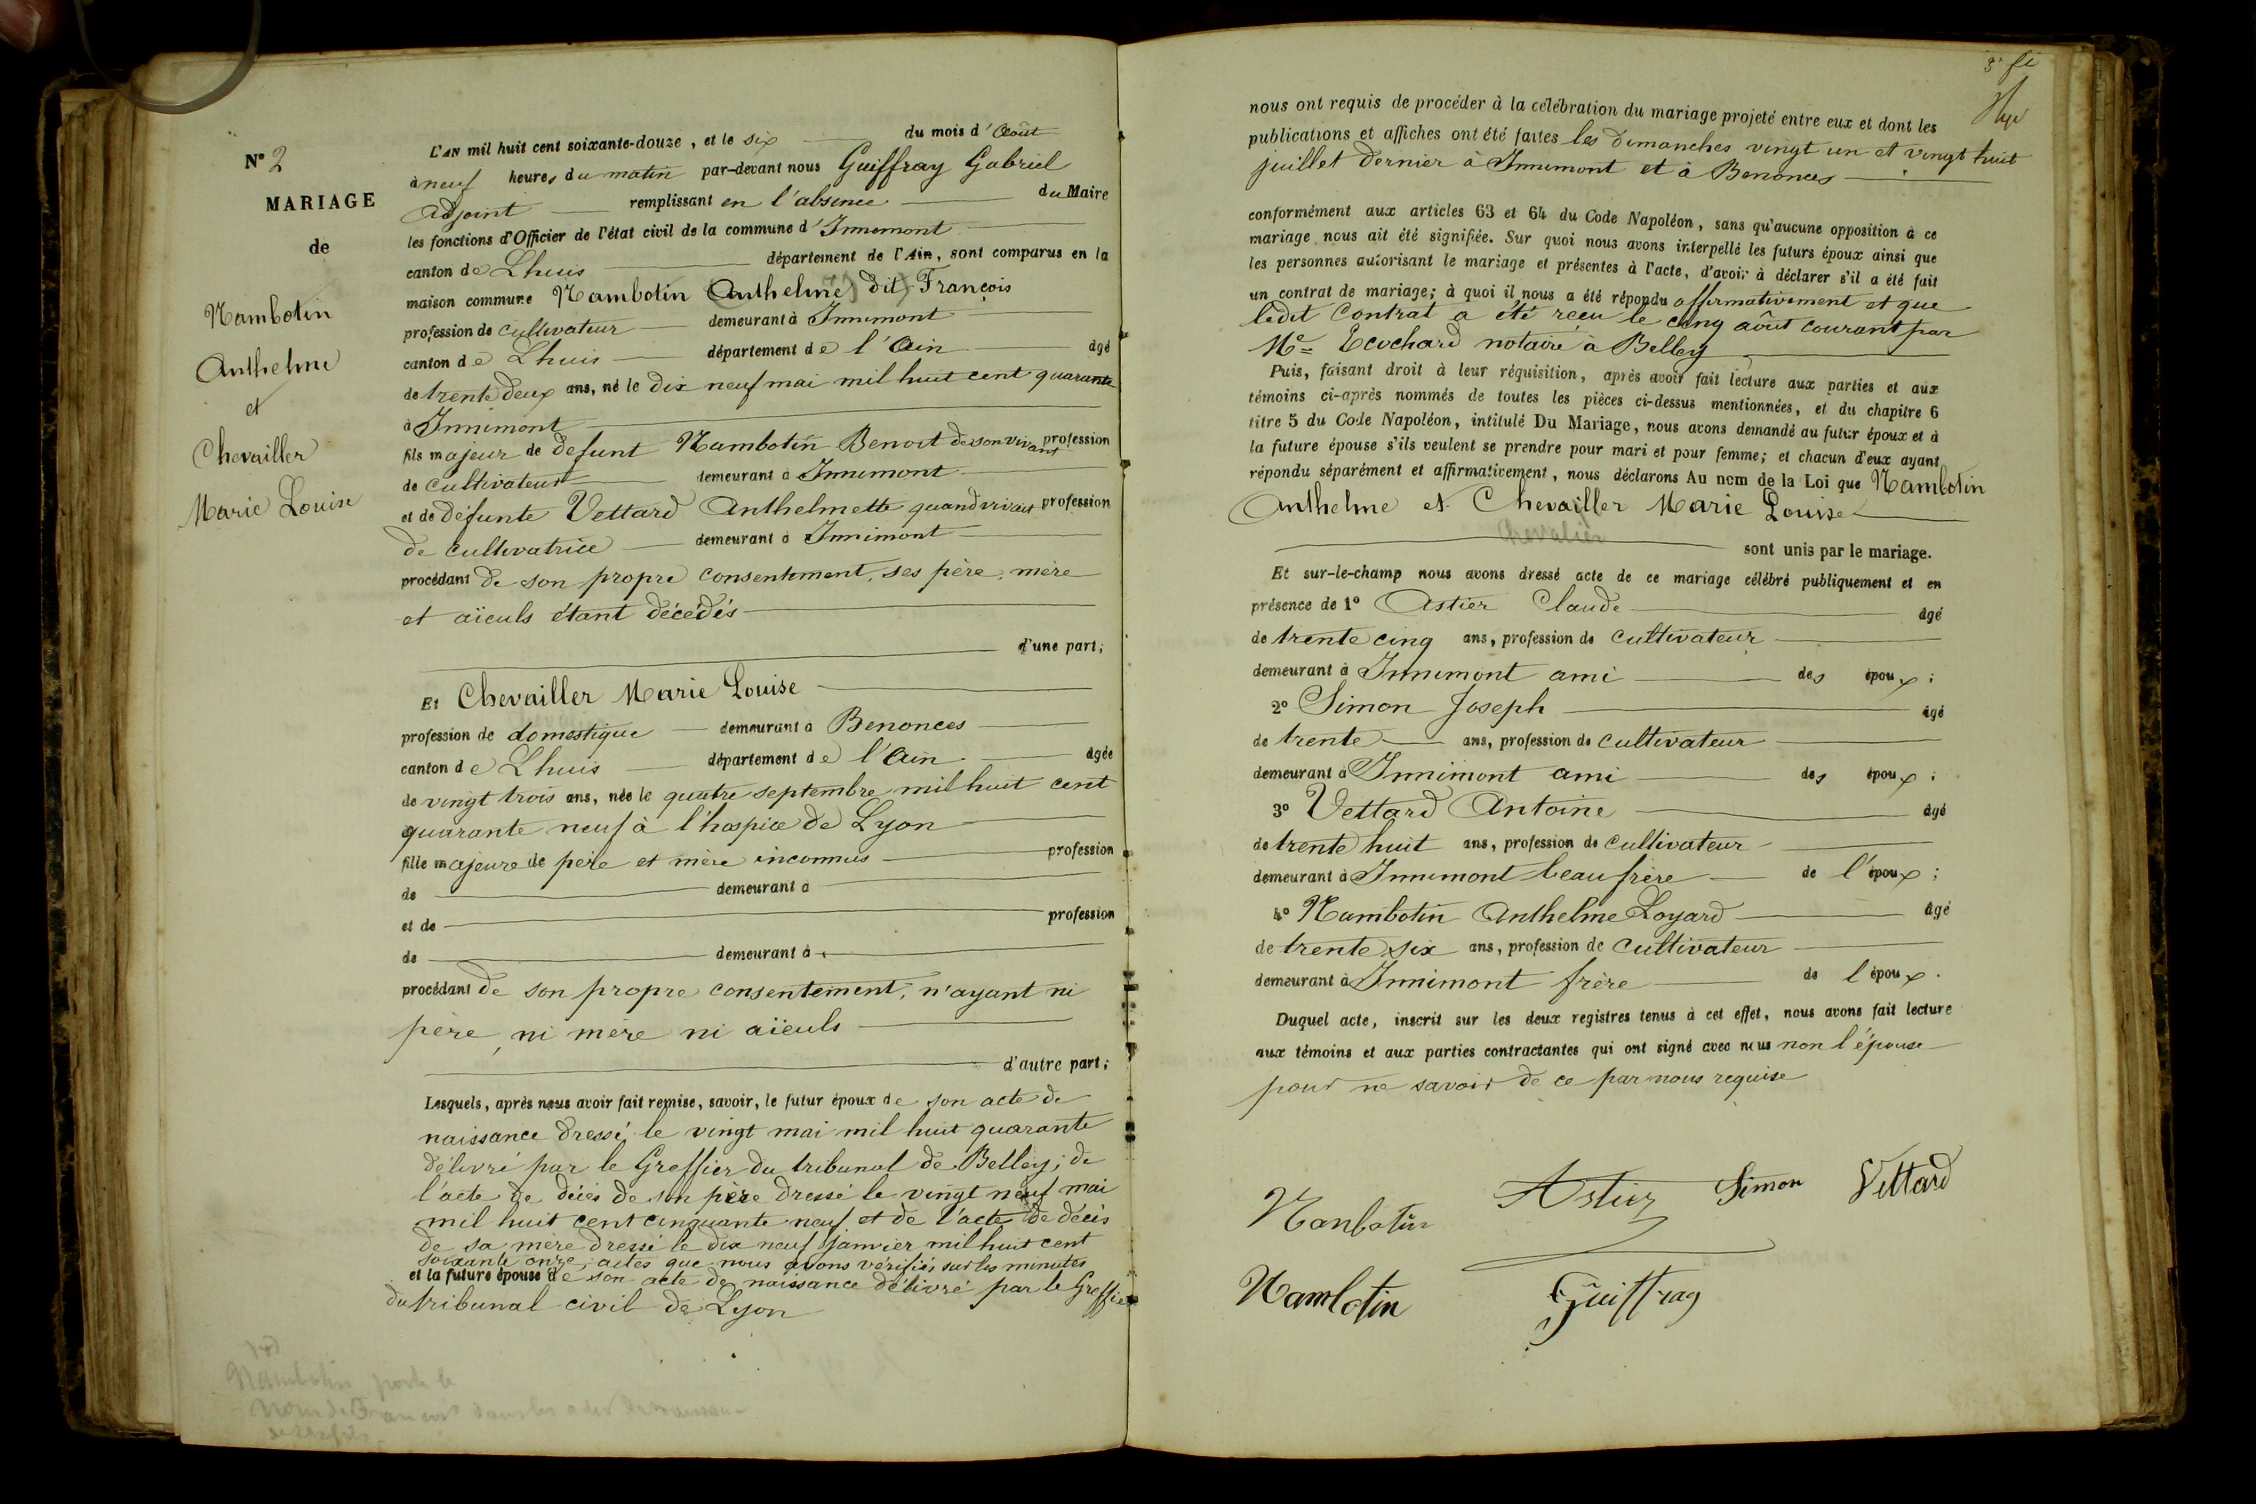 N° 2
MARIAGE
de
Nambotin
Anthelme
et
Chevailler
Marie Louise
L'AN mil huit cent soixante-douze, et le six du mois d'Août
à neuf heures du matin par-devant nous Guiffray Gabriel
adjoint remplissant en l'absence du Maire
les fonctions d'Officier de l'état civil de la commune d'Innimont
canton de Lhuis département de l'Ain, sont comparus en la
maison commune Nambotin (Anthelme) dit François
profession de cultivateur demeurant à Innimont
canton de Lhuis département de l'Ain âgé
de trente deux ans, né le dix neuf mai mil huit cent quarante
à Innimont
fils majeur de défunt Nambotin Benoit de son vivant profession
de cultivateur demeurant à Innimont
et de défunte Vettard Anthelmette quand vivait profession
de cultivatrice demeurant à Innimont
procédant de son propre consentement, ses père, mère
et aïeuls étant décédés
d'une part;
Et Chevailler Marie Louise
profession de domestique demeurant à Benonces
canton de Lhuis département de l'Ain âgée
de vingt trois ans, née le quatre septembre mil huit cent
quarante neuf à l'hospice de Lyon
fille majeure de père et mère inconnus profession
de demeurant à
et de profession
de demeurant à
procédant de son propre consentement, n'ayant ni
père, ni mère ni aïeuls
d'autre part;
Lesquels, après nous avoir fait remise, savoir, le futur époux de son acte de
naissance dressé le vingt mai mil huit quarante
délivré par le Greffier du tribunal de Belley; de
l'acte de décès de son père dressé le vingt neuf mai
mil huit cent cinquante neuf et de l'acte de décès
de sa mère dressé le dix neuf janvier mil huit cent
soixante onze, actes que nous avons vérifiés sur les minutes
et la future épouse de son acte de naissance délivré par le Greffier
du tribunal civil de Lyon
Nambotin porte le
nom de François dans les actes de naissance
nous ont requis de procéder à la célébration du mariage projeté entre eux et dont les
publications et affiches ont été faites les dimanches vingt un et vingt huit
juillet dernier à Innimont et à Benonces
conformément aux articles 63 et 64 du Code Napoléon, sans qu'aucune opposition à ce
mariage nous ait été signifiée. Sur quoi nous avons interpellé les futurs époux ainsi que
les personnes autorisant le mariage et présentes à l'acte, d'avoir à déclarer s'il a été fait
un contrat de mariage; à quoi il nous a été répondu affirmativement et que
ledit contrat a été reçu le cinq août courant par
Me notaire à Belley
Puis, faisant droit à leur réquisition, après avoir fait lecture aux parties et aux
témoins ci-après nommés de toutes les pièces ci-dessus mentionnées, et du chapitre 6
titre 5 du Code Napoléon, intitulé Du Mariage, nous avons demandé au futur époux et à
la future épouse s'ils veulent se prendre pour mari et pour femme; et chacun d'eux ayant
répondu séparément et affirmativement, nous déclarons Au nom de la Loi que Nambotin
Anthelme et Chevailler Marie Louise
Chevalier
sont unis par le mariage.
Et sur-le-champ nous avons dressé acte de ce mariage célébré publiquement et en
présence de 1° Astier Claude âgé
de trente cinq ans, profession de cultivateur
demeurant à Innimont ami des époux;
2° Simon Joseph âgé
de trente ans, profession de cultivateur
demeurant à Innimont ami des époux;
3° Vettard Antoine âgé
de trente huit ans, profession de cultivateur
demeurant à Innimont beau frère de l'époux;
4° Nambotin Anthelme Loyard âgé
de trente six ans, profession de cultivateur
demeurant à Innimont frère de l'époux.
Duquel acte, inscrit sur les deux registres tenus à cet effet, nous avons fait lecture
aux témoins et aux parties contractantes qui ont signé avec nous non l'épouse
pour ne savoir de ce par nous requise
Nanbotin Astier Simon Vettard
Nambotin Guiffray